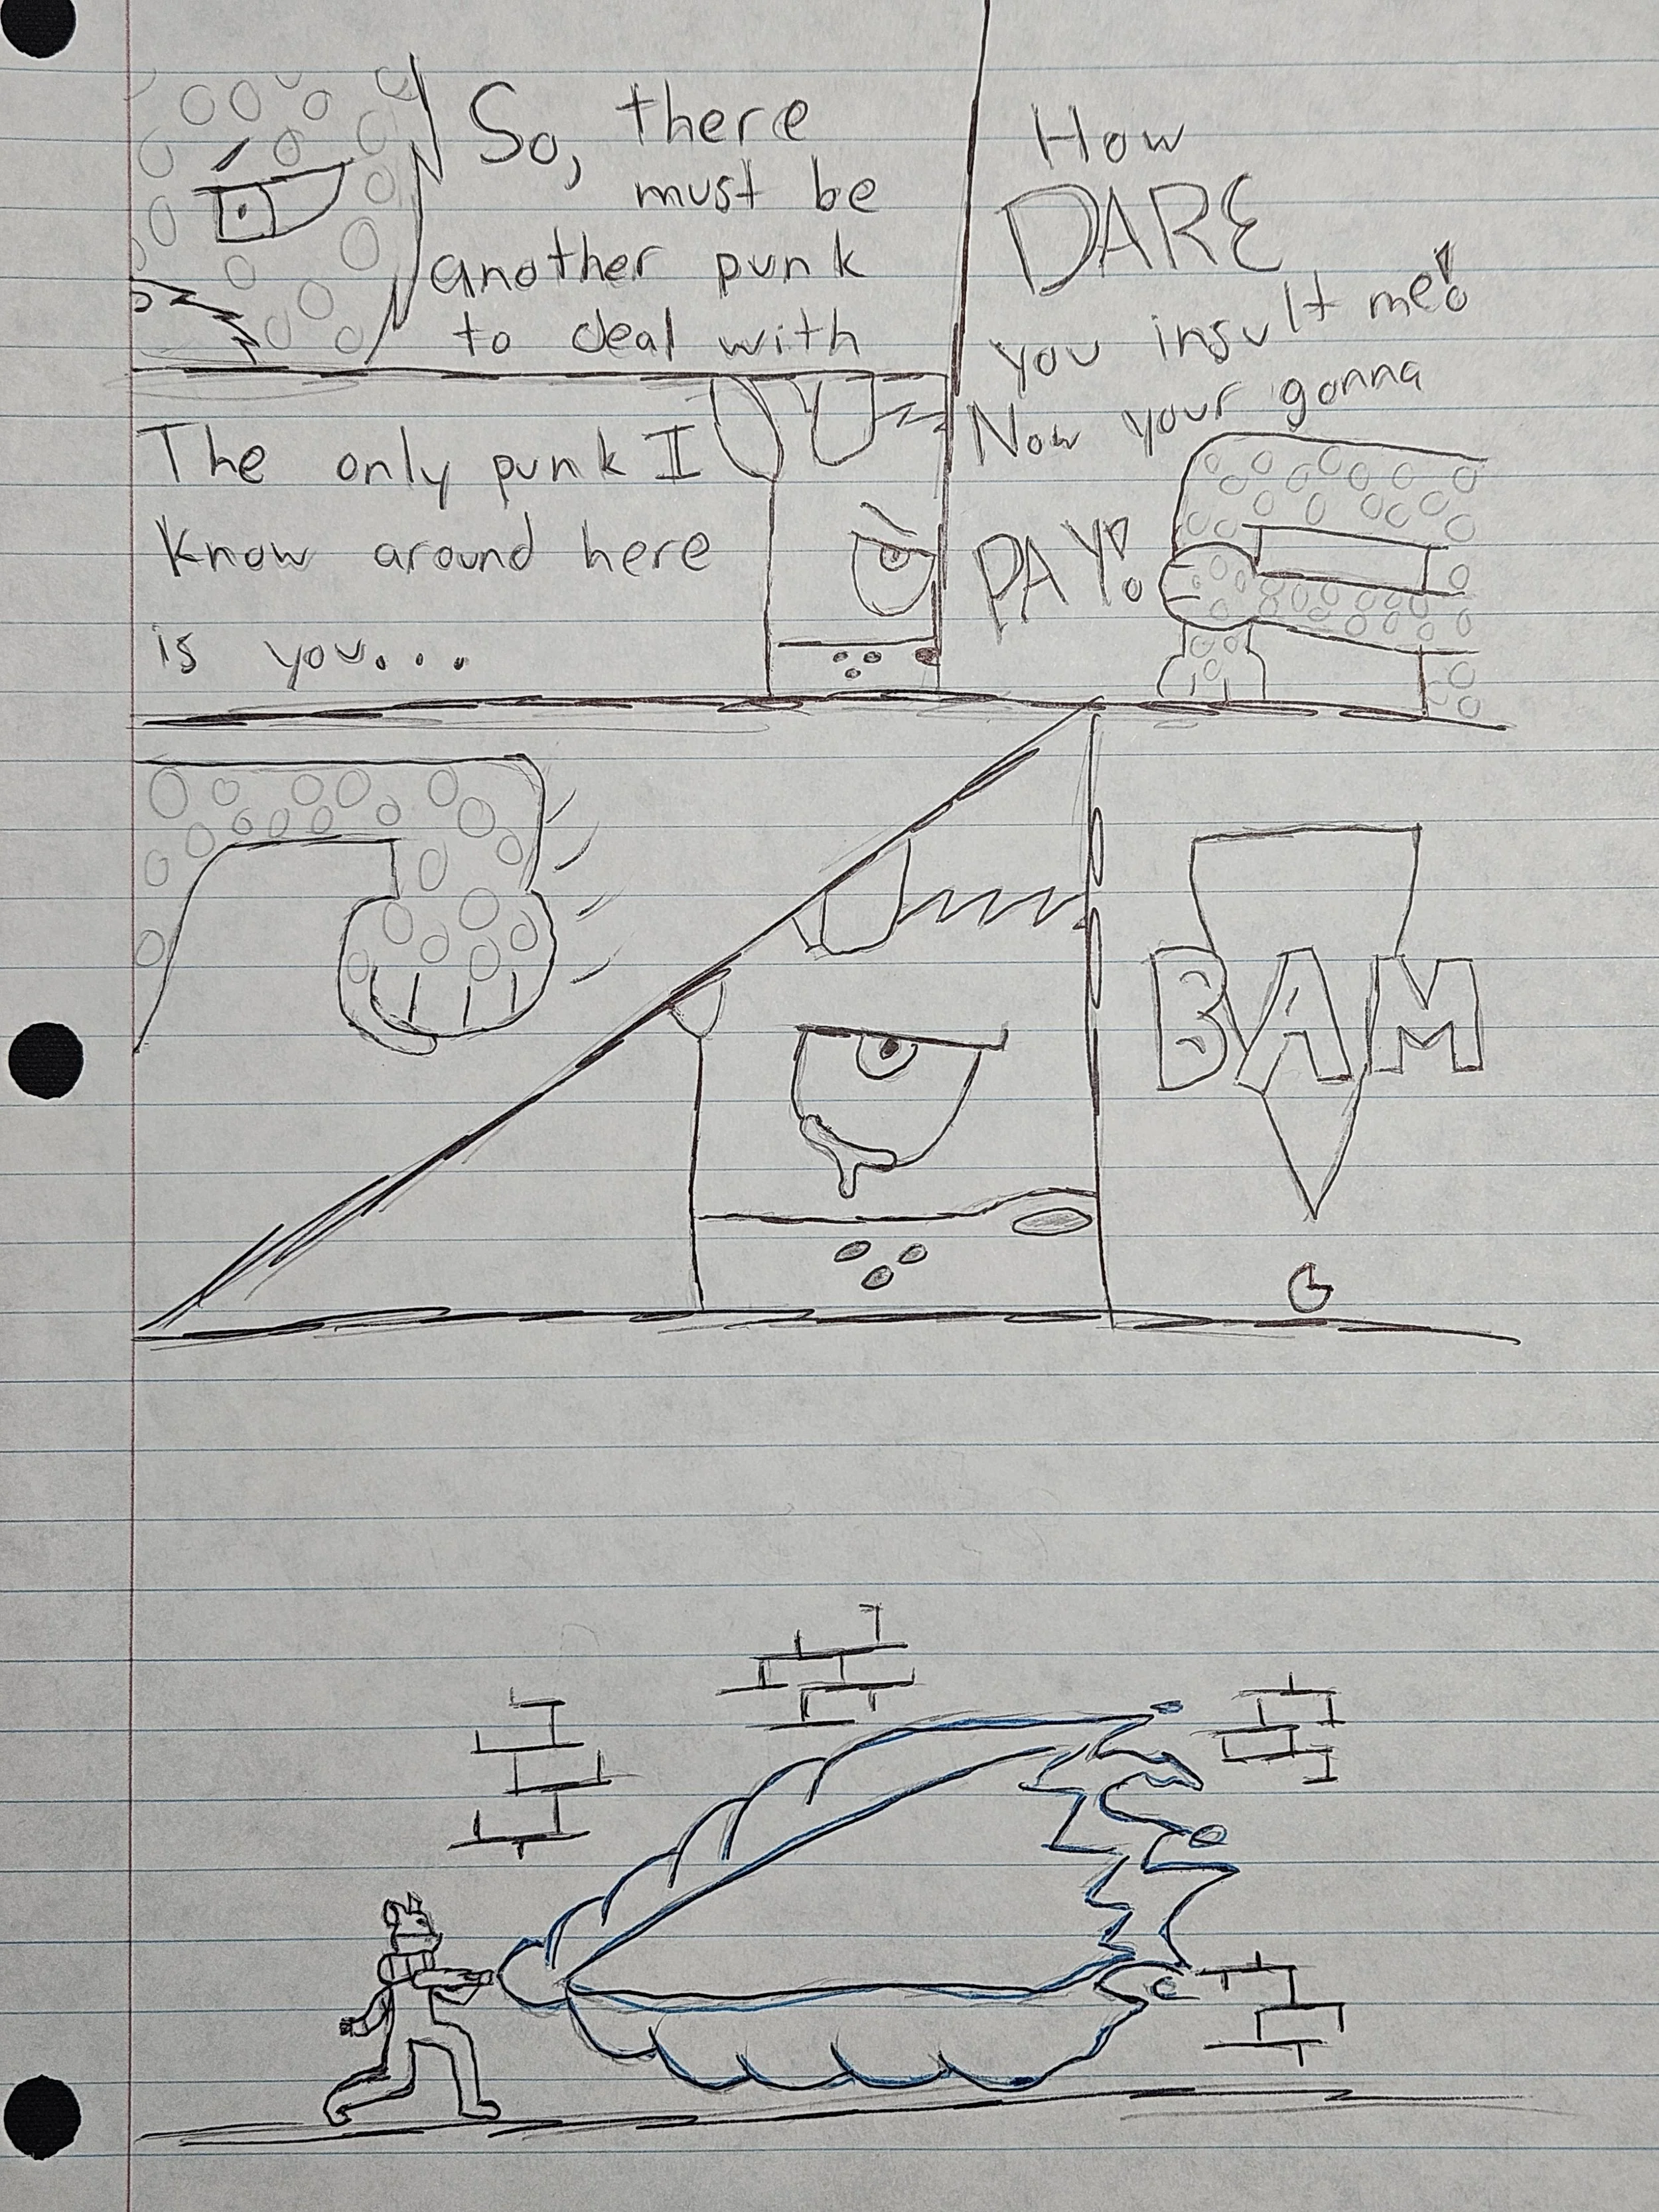 So, there
must be
another punk
to deal with
The only punk I
know around here
is you...
How
DARE
you insult me!
Now your gonna
PAY!
BAM